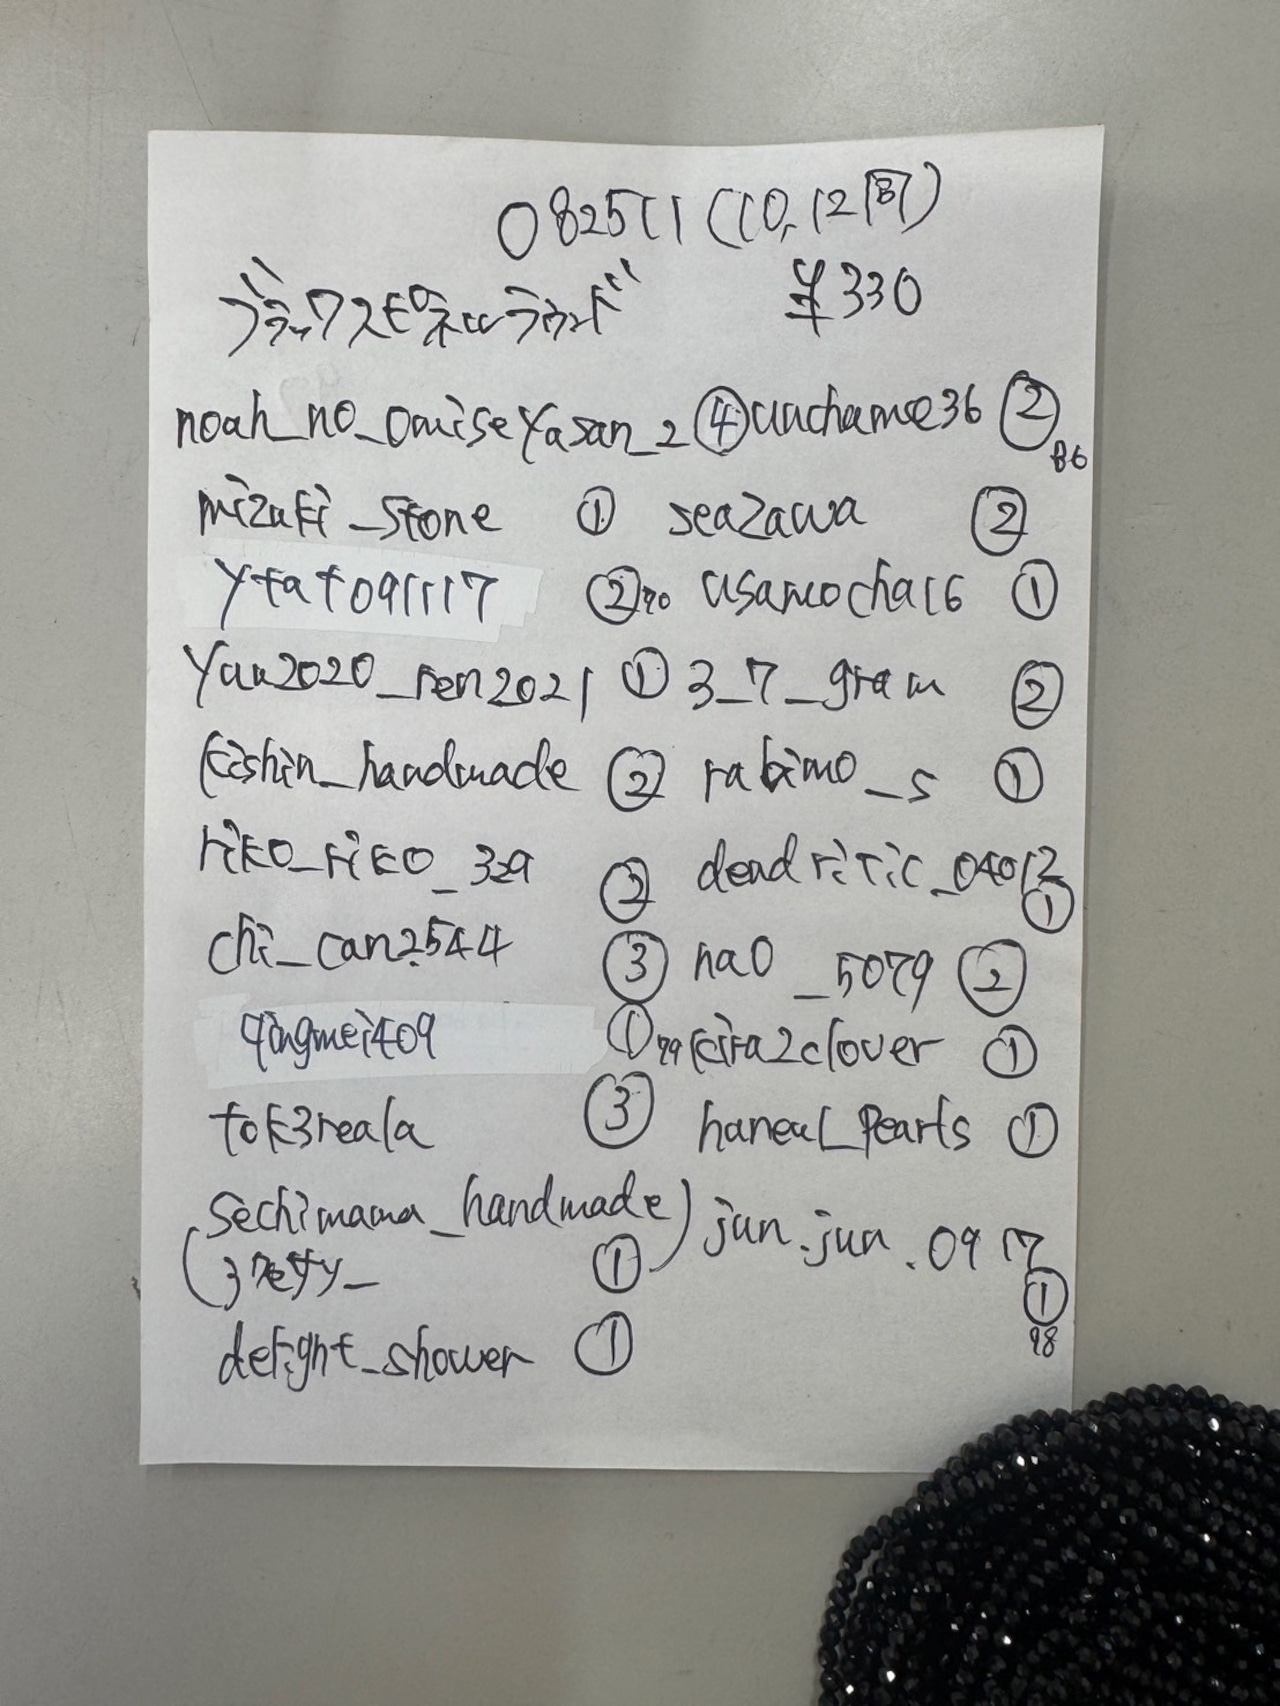 082511 (10,12日)
ブラックスピネルラウンド ¥330
noah_no_omiseyasan_2 ④ unchamee36 ② 86
mizuki_stone ① seazawa ②
ytat091117 ② 90 usamocha16 ①
yuu2020_ren2021 ① 3_7_gram ②
kishin_handmade ② rabimo_s ①
riko_riko_329 ② dendritic_04012 ①
chi_can2544 ③ na0_5079 ②
qingmei409 ① 99 kira2clover ①
tok3reala ③ haneul_pearls ①
(sechimama_handmade) jun.jun.0917
① ①
delight_shower ① 98